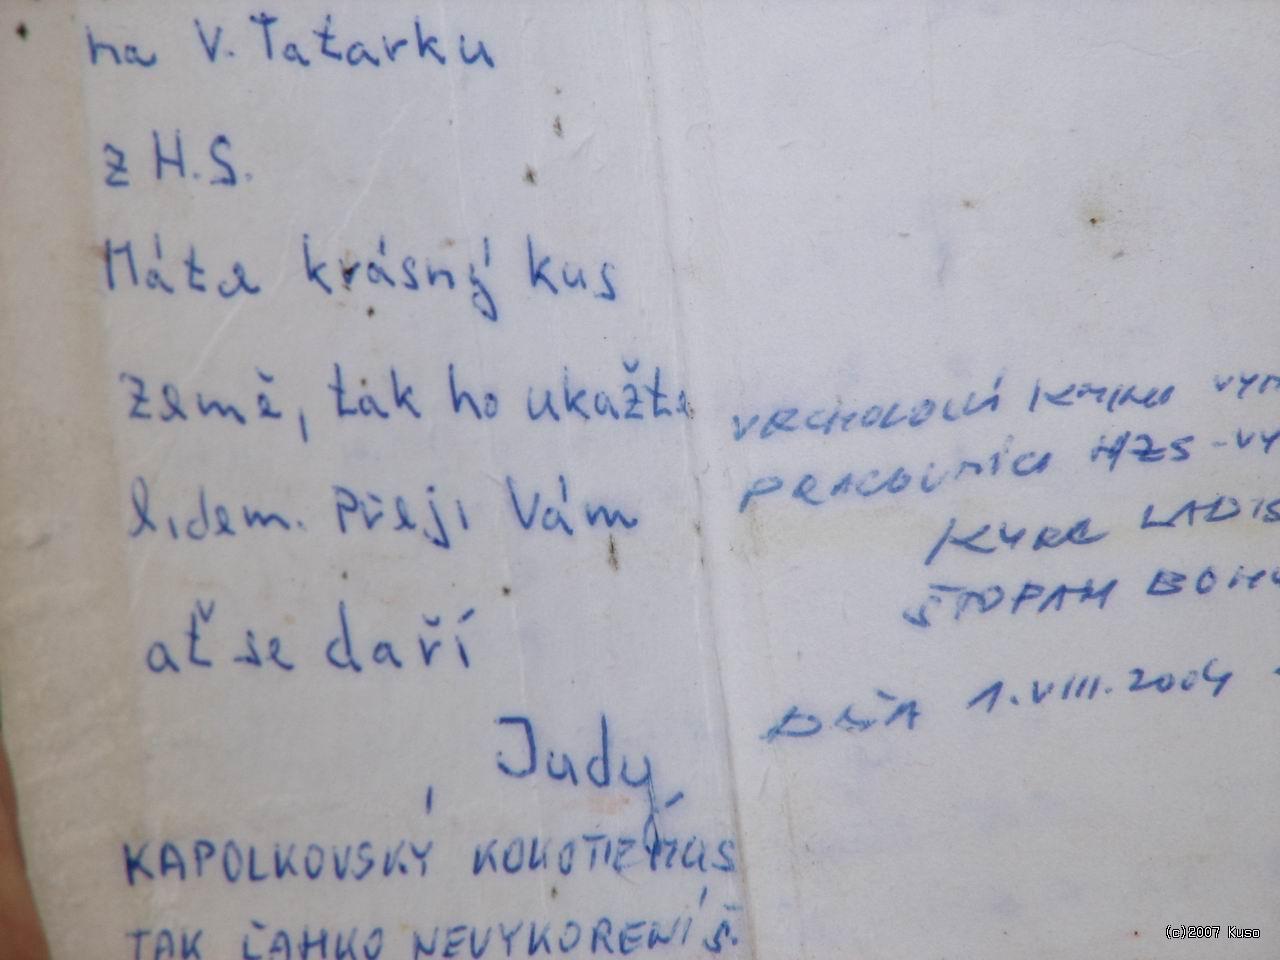 na V. Tatarku
z H.S.
Máte krásný kus
země, tak ho ukažte
lidem. Přeji Vám
ať se daří
Judy
KAPOLKOVSKÝ KOKOTIZMUS
TAK ĽAHKO NEVYKORENÍŠ.
VRCHOLOVÚ KNIHU VYM
PRACOVNÍCI HZS - VY
KYRC LADIS
ŠTOPAM BOH
DŇA 1.VIII.2004
(c)2007 Kuso